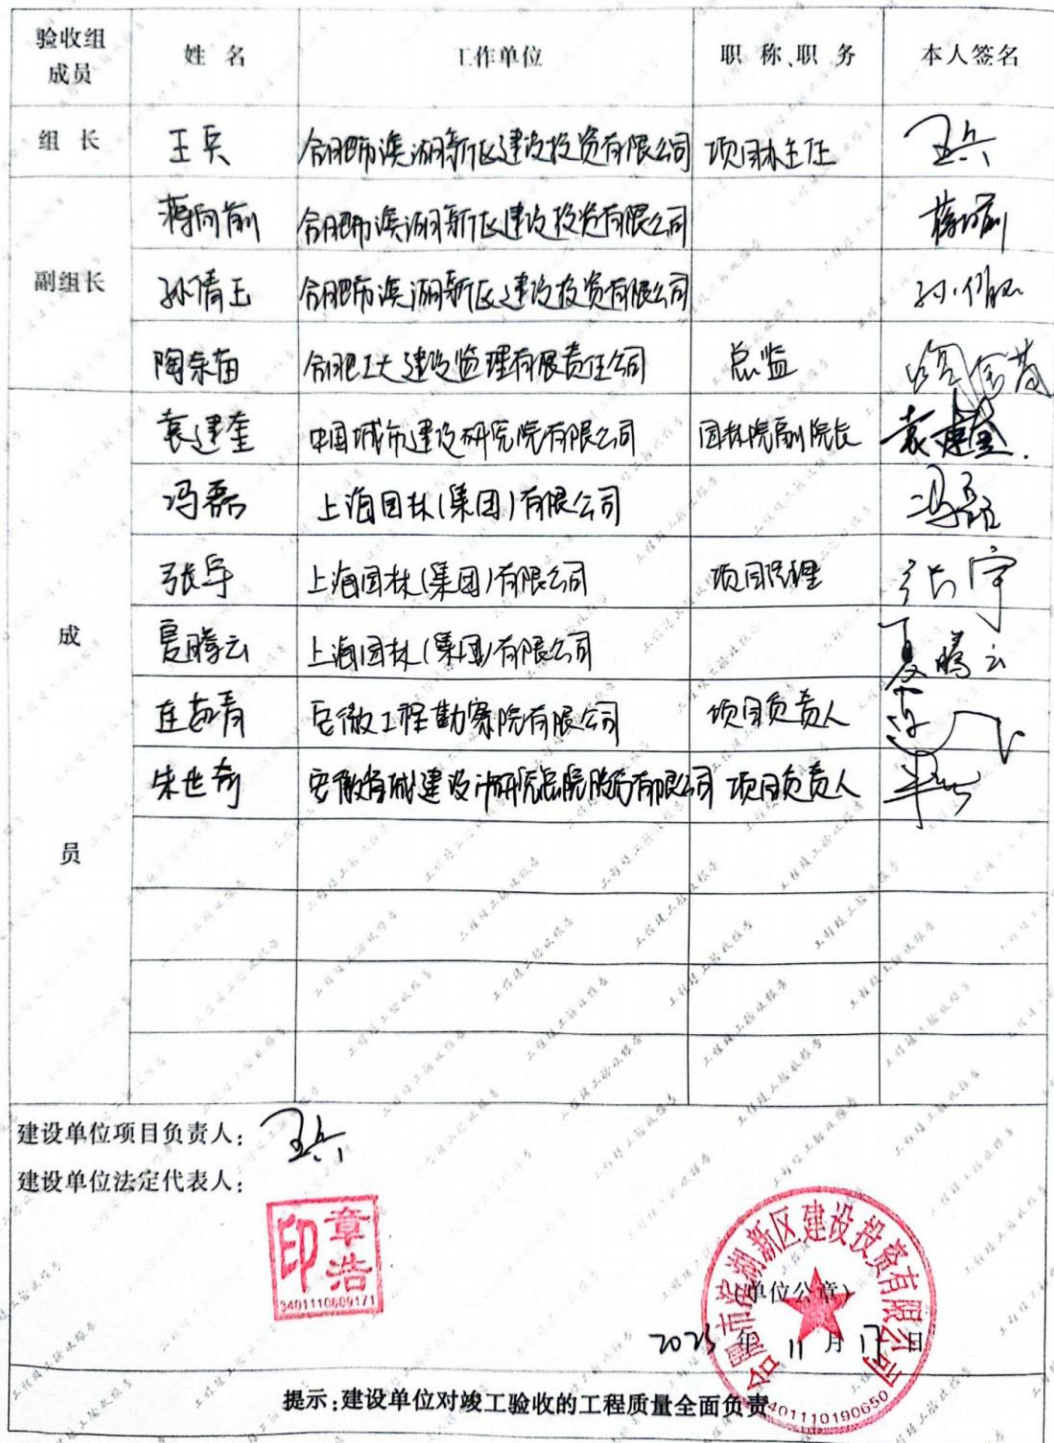 验收组成员 姓 名 工作单位 职 称、职 务 本人签名
组 长 王兵 合肥市滨湖新区建设投资有限公司 项目办主任 王兵
副组长 蒋向前 合肥市滨湖新区建设投资有限公司 蒋向前
孙倩玉 合肥市滨湖新区建设投资有限公司
合肥工大建设监理有限责任公司 总监
成员 袁建奎 中国城市建设研究院有限公司 园林院副院长 袁建奎
冯磊 上海园林(集团)有限公司 冯磊
张宇 上海园林(集团)有限公司 项目经理 张宇
夏腾云 上海园林(集团)有限公司 夏腾云
安徽工程勘察院有限公司 项目负责人
安徽省城建设计研究总院股份有限公司 项目负责人
建设单位项目负责人: 王兵
建设单位法定代表人:
章浩印
3401110609171
合肥市滨湖新区建设投资有限公司
(单位公章)
2023 年 11 月 17 日
3401110190650
提示:建设单位对竣工验收的工程质量全面负责
工程竣工验收报告